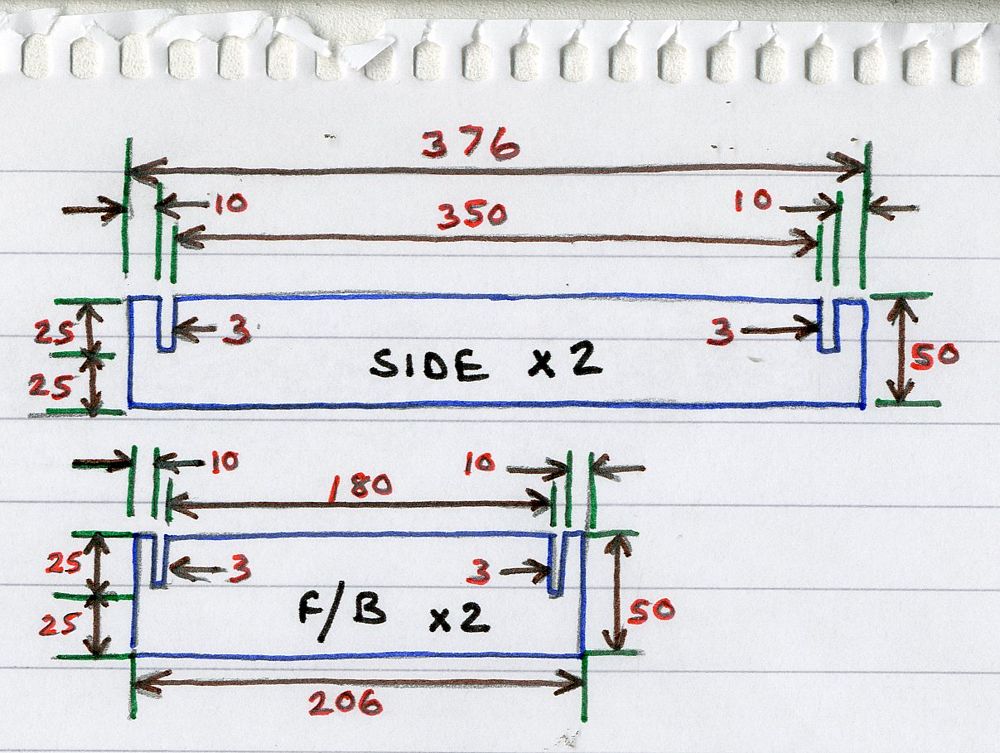 376
10 350 10
25 3 3 50
SIDE x2
25
10 180 10
25 3 3
F/B x2 50
25
206